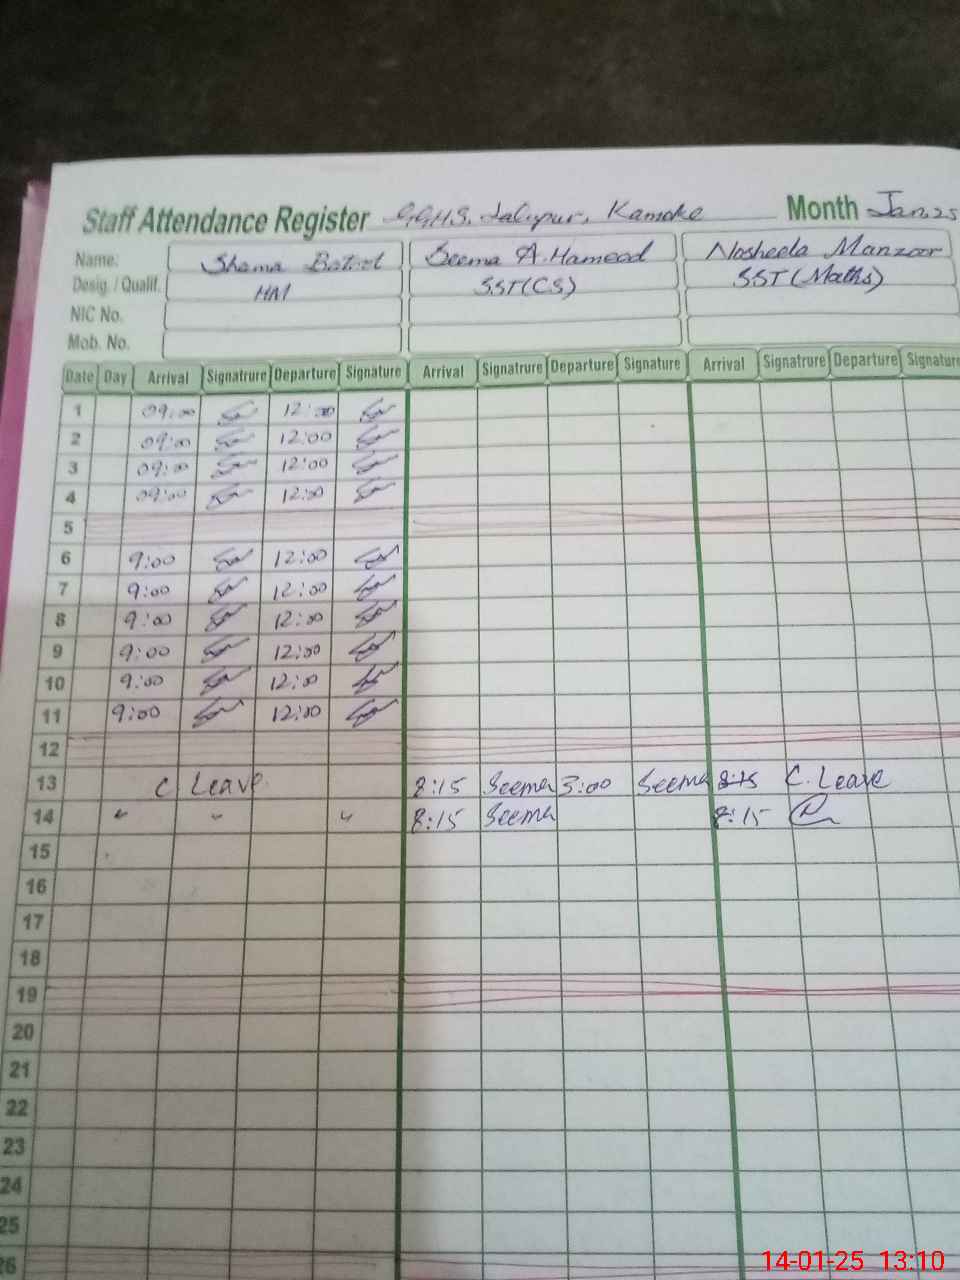 Staff Attendance Register G.G.H.S. Jalupur, Kamoke Month Jan,25
Name: Shama Batool Seema A.Hameed Nosheela Manzoor
Desig. / Qualif. HM SST(CS) SST(Maths)
NIC No.
Mob. No.
Date Day Arrival Signatrure Departure Signature Arrival Signatrure Departure Signature Arrival Signatrure Departure Signature
1 09:00 12:00
2 09:00 12:00
3 09:00 12:00
4 09:00 12:00
5
6 9:00 12:00
7 9:00 12:00
8 9:00 12:00
9 9:00 12:00
10 9:00 12:00
11 9:00 12:00
12
13 C Leave 8:15 Seema 3:00 Seema 8:15 C. Leave
14 " " " 8:15 Seema 8:15
15
16
17
18
19
20
21
22
23
24
25
26
14-01-25 13:10